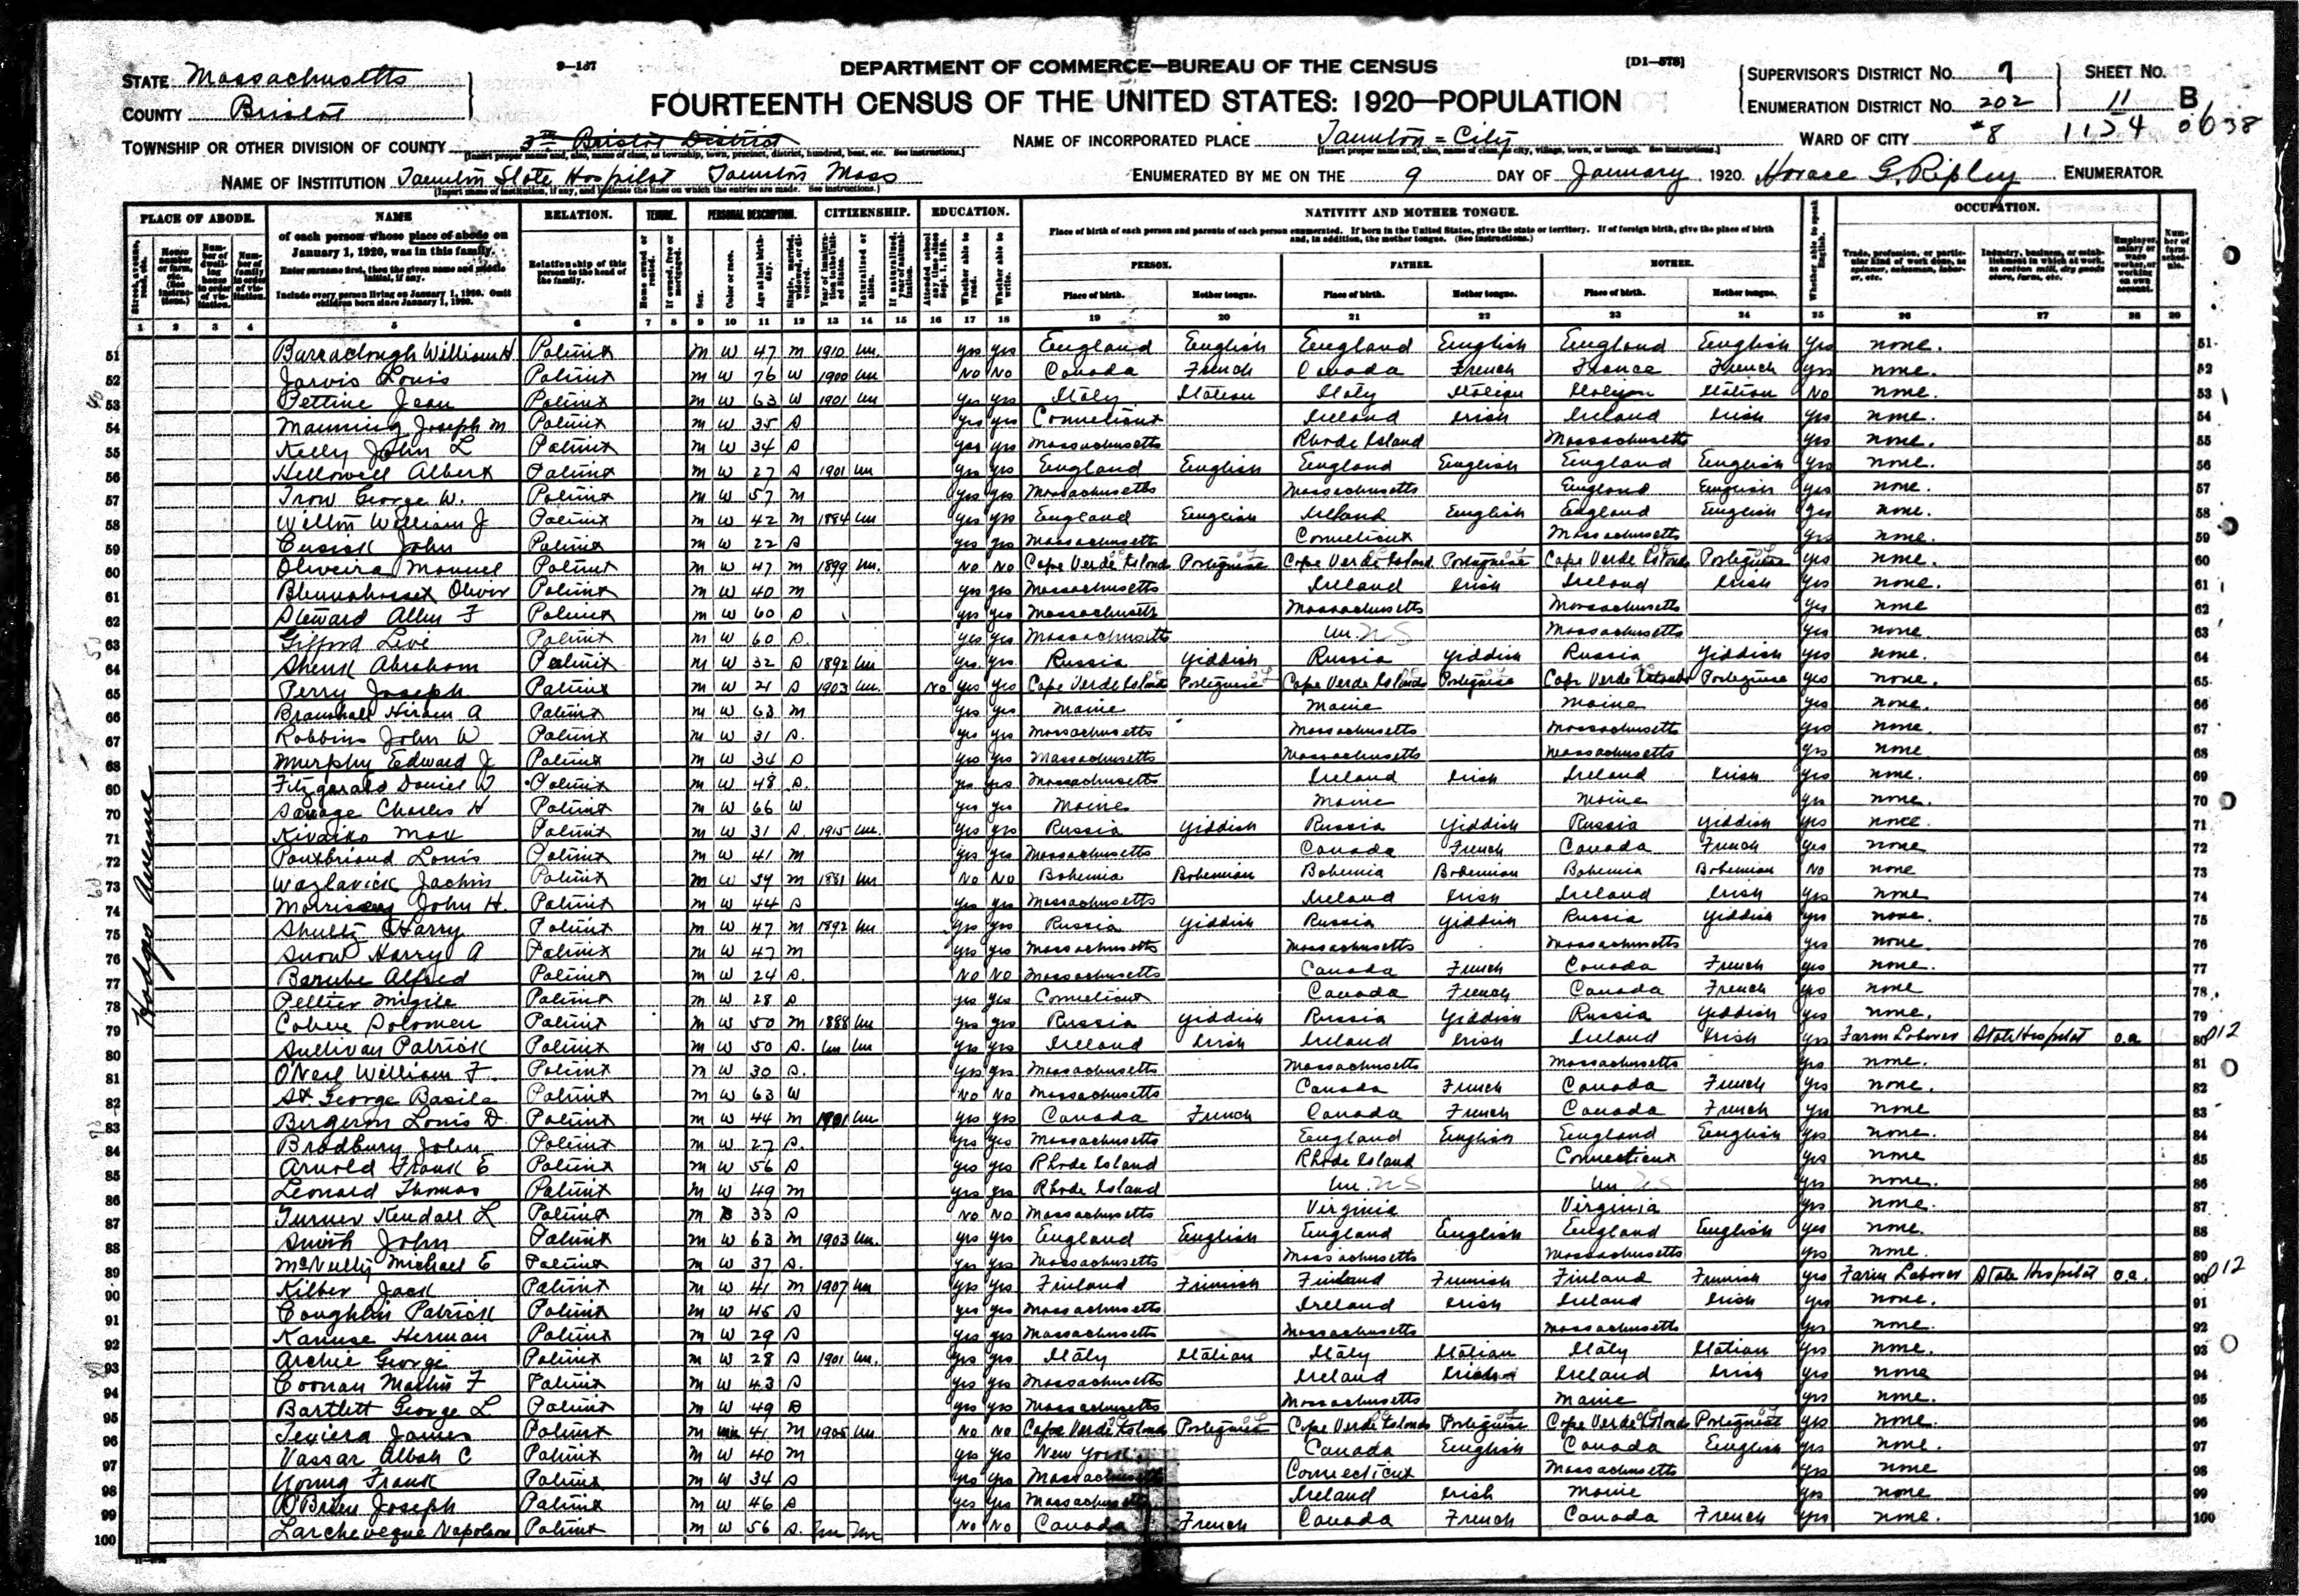 9—137
DEPARTMENT OF COMMERCE—BUREAU OF THE CENSUS
[D1—578]
STATE Massachusetts
COUNTY Bristol
FOURTEENTH CENSUS OF THE UNITED STATES: 1920—POPULATION
SUPERVISOR'S DISTRICT NO. 7
ENUMERATION DISTRICT NO. 202
SHEET NO. 11 B
TOWNSHIP OR OTHER DIVISION OF COUNTY 3rd Bristol District
NAME OF INCORPORATED PLACE Taunton = City
WARD OF CITY #8 1154
NAME OF INSTITUTION Taunton State Hospital Taunton Mass
ENUMERATED BY ME ON THE 9 DAY OF January, 1920. Horace G. Ripley ENUMERATOR
PLACE OF ABODE. NAME RELATION. TENURE. PERSONAL DESCRIPTION. CITIZENSHIP. EDUCATION. NATIVITY AND MOTHER TONGUE. OCCUPATION.
of each person whose place of abode on January 1, 1920, was in this family.
Enter surname first, then the given name and middle initial, if any.
Include every person living on January 1, 1920. Omit children born since January 1, 1920.
Relationship of this person to the head of the family.
Place of birth of each person and parents of each person enumerated. If born in the United States, give the state or territory. If of foreign birth, give the place of birth and, in addition, the mother tongue. (See Instructions.)
PERSON. FATHER. MOTHER.
Place of birth. Mother tongue. Place of birth. Mother tongue. Place of birth. Mother tongue.
1 2 3 4 5 6 7 8 9 10 11 12 13 14 15 16 17 18 19 20 21 22 23 24 25 26 27 28 29
Hodges Avenue
51 Barraclough William H Patient M W 47 M 1910 Un. yes yes England English England English England English yes none.
52 Jarvis Louis Patient M W 76 W 1900 Un No No Canada French Canada French France French yes none.
53 Pettine Jean Patient M W 63 W 1901 Un yes yes Italy Italian Italy Italian Italian No none.
54 Manning Joseph M Patient M W 35 S yes yes Connecticut Ireland Irish Ireland Irish yes none.
55 Kelly John L Patient M W 34 S yes yes Massachusetts Rhode Island Massachusetts yes none.
56 Hellowell Albert Patient M W 27 S 1901 Un yes yes England English England English England English yes none.
57 Trow George W. Patient M W 57 M yes yes Massachusetts Massachusetts England English yes none.
58 William J Patient M W 42 M 1884 Un yes yes England English Ireland English England English yes none.
59 Cusick John Patient M W 22 S yes yes Massachusetts Connecticut Massachusetts yes none.
60 Oliveira Manuel Patient M W 47 M 1899 Un. No No Cape Verde Islands Portuguese Cape Verde Island Portuguese Cape Verde Islands Portuguese yes none.
61 Patient M W 40 M yes yes Massachusetts Ireland Irish Ireland Irish yes none.
62 Steward Allen F Patient M W 60 S yes yes Massachusetts Massachusetts Massachusetts yes none
63 Gifford Levi Patient M W 60 S. yes yes Massachusetts Un. NS Massachusetts yes none.
64 Shenk Abraham Patient M W 32 S 1892 Un yes yes Russia Yiddish Russia Yiddish Russia Yiddish yes none.
65 Perry Joseph Patient M W 21 S 1903 Un. No yes yes Cape Verde Islands Portuguese Cape Verde Islands Portuguese Cape Verde Islands Portuguese yes none.
66 Bramhall Hiram A Patient M W 63 M yes yes Maine Maine Maine yes none.
67 Robbins John W Patient M W 31 S. yes yes Massachusetts Massachusetts Massachusetts yes none.
68 Murphy Edward J Patient M W 34 S yes yes Massachusetts Massachusetts Massachusetts yes none
69 Fitzgerald Daniel Patient M W 48 S. yes yes Massachusetts Ireland Irish Ireland Irish yes none.
70 Savage Charles H Patient M W 66 W yes yes Maine Maine Maine yes none.
71 Max Patient M W 31 S. 1915 Un. yes yes Russia Yiddish Russia Yiddish Russia Yiddish yes none.
72 Pontbriand Louis Patient M W 41 M yes yes Massachusetts Canada French Canada French yes none
73 Wazlavick Patient M W M 1881 Un No No Bohemia Bohemian Bohemia Bohemian Bohemia Bohemian No none
74 Morrissey John H. Patient M W 44 S yes yes Massachusetts Ireland Irish Ireland Irish yes none
75 Shultz Harry Patient M W 47 M 1892 Un yes yes Russia Yiddish Russia Yiddish Russia Yiddish yes none.
76 Snow Harry A Patient M W 47 M yes yes Massachusetts Massachusetts Massachusetts yes none.
77 Barube Alfred Patient M W 24 S. No No Massachusetts Canada French Canada French yes none.
78 Peltier Patient M W 28 S yes yes Connecticut Canada French Canada French yes none
79 Solomon Patient M W 50 M 1888 Un yes yes Russia Yiddish Russia Yiddish Russia Yiddish yes none.
80 Sullivan Patrick Patient M W 50 S. Un Un yes yes Ireland Irish Ireland Irish Ireland Irish yes Farm Laborer State Hospital o.a. 012
81 O'Neil William F. Patient M W 30 S. yes yes Massachusetts Massachusetts Massachusetts yes none.
82 St George Basile Patient M W 63 W No No Massachusetts Canada French Canada French yes none.
83 Bergeron Louis D. Patient M W 44 M 1901 Un yes yes Canada French Canada French Canada French yes none
84 Bradbury John Patient M W 27 S. yes yes Massachusetts England English England English yes none.
85 Arnold Frank E Patient M W 56 S yes yes Rhode Island Rhode Island Connecticut yes none
86 Leonard Thomas Patient M W 49 M yes yes Rhode Island Un. NS Un NS yes none.
87 Turner Kendall L Patient M B 33 S No No Massachusetts Virginia Virginia yes none.
88 Smith John Patient M W 63 M 1903 Un. yes yes England English England English England English yes none.
89 McNulty Michael E Patient M W 37 S. yes yes Massachusetts Massachusetts Massachusetts yes none.
90 Kilber Jack Patient M W 41 M 1907 Un yes yes Finland Finnish Finland Finnish Finland Finnish yes Farm Laborer State Hospital o.a. 012
91 Coughlin Patrick Patient M W 45 S yes yes Massachusetts Ireland Irish Ireland Irish yes none.
92 Herman Patient M W 29 S yes yes Massachusetts Massachusetts Massachusetts yes none.
93 Archie George Patient M W 28 S 1901 Un. yes yes Italy Italian Italy Italian Italy Italian yes none.
94 Coonan Martin F Patient M W 43 S yes yes Massachusetts Ireland Irish Ireland Irish yes none
95 Bartlett George L. Patient M W 49 yes yes Massachusetts Massachusetts Maine yes none.
96 Teviera James Patient M 41 M 1905 Un No No Cape Verde Islands Portuguese Cape Verde Islands Portuguese Cape Verde Islands Portuguese yes none.
97 Vassar Albah C Patient M W 40 M yes yes New York Canada English Canada English yes none.
98 Young Frank Patient M W 34 S yes yes Massachusetts Connecticut Massachusetts yes none
99 O'Brien Joseph Patient M W 46 S. yes yes Massachusetts Ireland Irish Maine yes none
100 Larcheveque Napoleon Patient M W 56 S. Un Un No No Canada French Canada French Canada French yes none.